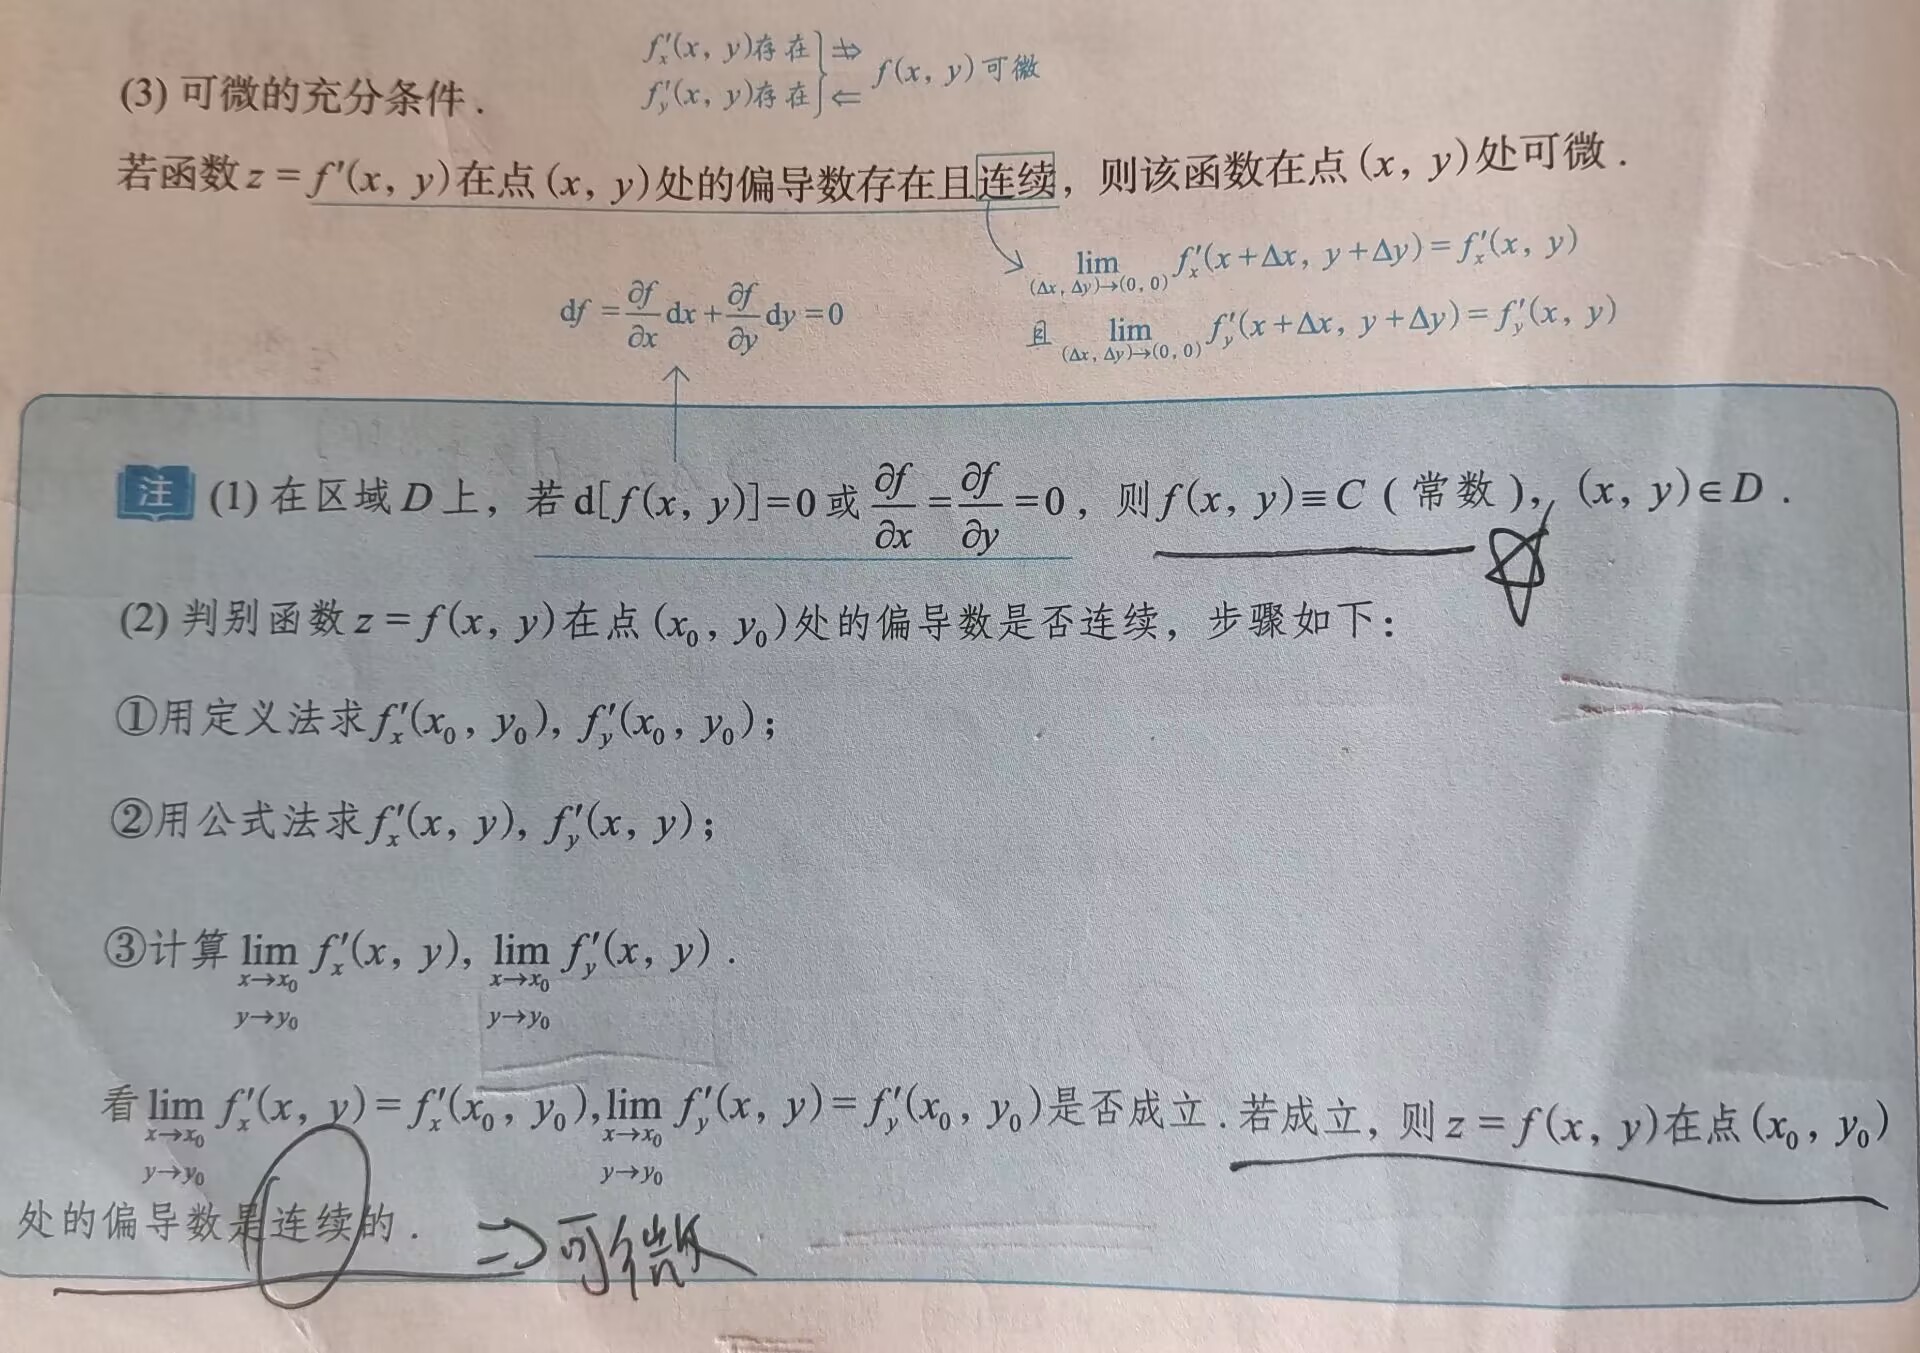 f′ₓ(x, y)存在 ⇏
(3) 可微的充分条件. f′ᵧ(x, y)存在 ⇐ f(x, y)可微
若函数z = f′(x, y)在点(x, y)处的偏导数存在且连续, 则该函数在点(x, y)处可微.
lim_{(Δx, Δy)→(0, 0)} f′ₓ(x+Δx, y+Δy) = f′ₓ(x, y)
df = ∂f/∂x dx + ∂f/∂y dy = 0
且 lim_{(Δx, Δy)→(0, 0)} f′ᵧ(x+Δx, y+Δy) = f′ᵧ(x, y)
注 (1) 在区域D上, 若d[f(x, y)]=0或∂f/∂x=∂f/∂y=0, 则f(x, y)≡C (常数), (x, y)∈D.
(2) 判别函数z = f(x, y)在点(x₀, y₀)处的偏导数是否连续, 步骤如下:
①用定义法求f′ₓ(x₀, y₀), f′ᵧ(x₀, y₀);
②用公式法求f′ₓ(x, y), f′ᵧ(x, y);
③计算 lim_{x→x₀ y→y₀} f′ₓ(x, y), lim_{x→x₀ y→y₀} f′ᵧ(x, y).
看 lim_{x→x₀ y→y₀} f′ₓ(x, y) = f′ₓ(x₀, y₀), lim_{x→x₀ y→y₀} f′ᵧ(x, y) = f′ᵧ(x₀, y₀)是否成立. 若成立, 则z = f(x, y)在点(x₀, y₀)
处的偏导数是连续的. ⇒可微